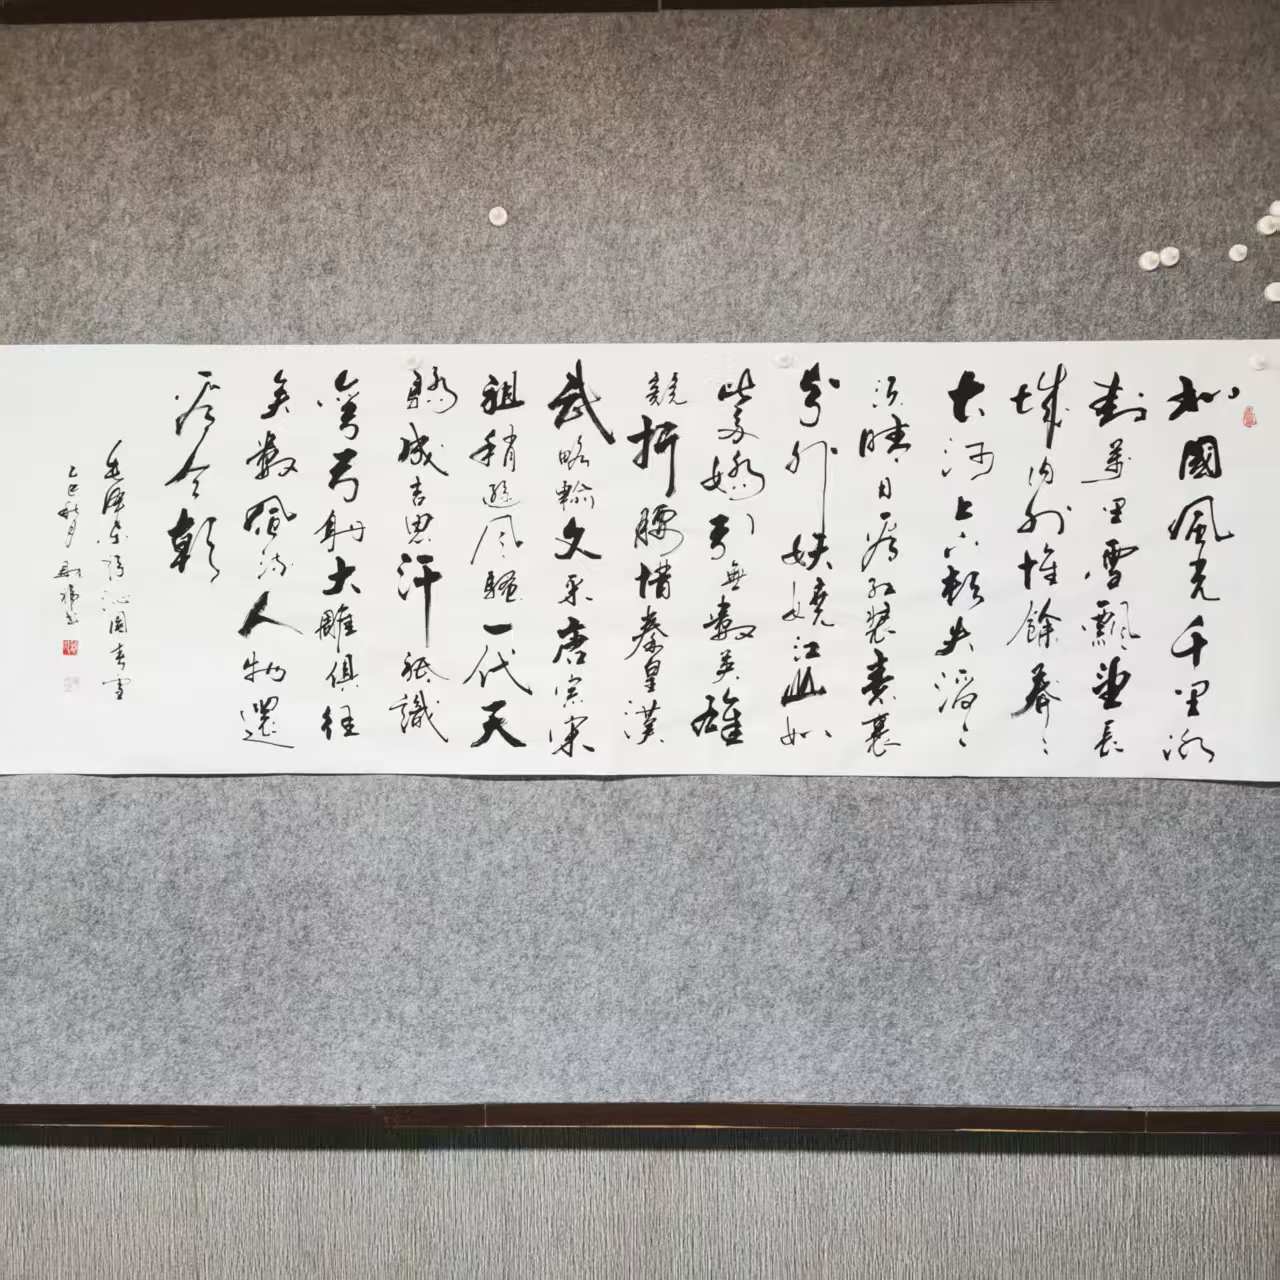 北國風光千里冰
封萬里雪飄望長
城内外惟餘莽〻
大河上下頓失滔〻
須晴日看紅裝素裹
分外妖嬈江山如
此多嬌引無數英雄
競折腰惜秦皇漢
武略輸文采唐宗宋
祖稍遜风騷一代天
驕成吉思汗祇識
彎弓射大雕俱往
矣數風流人物還
看今朝
毛澤东詞沁園春雪
乙巳秋月